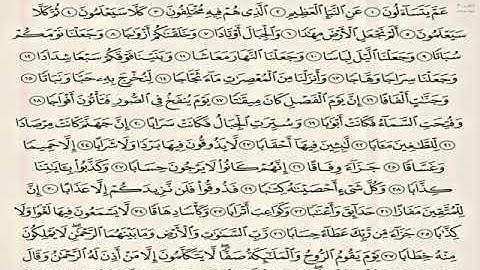 عَمَّ يَتَسَآءَلُونَ ١ عَنِ ٱلنَّبَإِ ٱلْعَظِيمِ ٢ ٱلَّذِى هُمْ فِيهِ مُخْتَلِفُونَ ٣ كَلَّا سَيَعْلَمُونَ ٤ ثُمَّ كَلَّا
سَيَعْلَمُونَ ٥ أَلَمْ نَجْعَلِ ٱلْأَرْضَ مِهَٰدًا ٦ وَٱلْجِبَالَ أَوْتَادًا ٧ وَخَلَقْنَٰكُمْ أَزْوَٰجًا ٨ وَجَعَلْنَا نَوْمَكُمْ
سُبَاتًا ٩ وَجَعَلْنَا ٱلَّيْلَ لِبَاسًا ١٠ وَجَعَلْنَا ٱلنَّهَارَ مَعَاشًا ١١ وَبَنَيْنَا فَوْقَكُمْ سَبْعًا شِدَادًا ١٢
وَجَعَلْنَا سِرَاجًا وَهَّاجًا ١٣ وَأَنزَلْنَا مِنَ ٱلْمُعْصِرَٰتِ مَآءً ثَجَّاجًا ١٤ لِّنُخْرِجَ بِهِۦ حَبًّا وَنَبَاتًا ١٥
وَجَنَّٰتٍ أَلْفَافًا ١٦ إِنَّ يَوْمَ ٱلْفَصْلِ كَانَ مِيقَٰتًا ١٧ يَوْمَ يُنفَخُ فِى ٱلصُّورِ فَتَأْتُونَ أَفْوَاجًا ١٨
وَفُتِحَتِ ٱلسَّمَآءُ فَكَانَتْ أَبْوَٰبًا ١٩ وَسُيِّرَتِ ٱلْجِبَالُ فَكَانَتْ سَرَابًا ٢٠ إِنَّ جَهَنَّمَ كَانَتْ مِرْصَادًا ٢١
لِّلطَّٰغِينَ مَـَٔابًا ٢٢ لَّٰبِثِينَ فِيهَآ أَحْقَابًا ٢٣ لَّا يَذُوقُونَ فِيهَا بَرْدًا وَلَا شَرَابًا ٢٤ إِلَّا حَمِيمًا
وَغَسَّاقًا ٢٥ جَزَآءً وِفَاقًا ٢٦ إِنَّهُمْ كَانُوا۟ لَا يَرْجُونَ حِسَابًا ٢٧ وَكَذَّبُوا۟ بِـَٔايَٰتِنَا
كِذَّابًا ٢٨ وَكُلَّ شَىْءٍ أَحْصَيْنَٰهُ كِتَٰبًا ٢٩ فَذُوقُوا۟ فَلَن نَّزِيدَكُمْ إِلَّا عَذَابًا ٣٠ إِنَّ
لِلْمُتَّقِينَ مَفَازًا ٣١ حَدَآئِقَ وَأَعْنَٰبًا ٣٢ وَكَوَاعِبَ أَتْرَابًا ٣٣ وَكَأْسًا دِهَاقًا ٣٤ لَّا يَسْمَعُونَ فِيهَا لَغْوًا وَلَا
كِذَّٰبًا ٣٥ جَزَآءً مِّن رَّبِّكَ عَطَآءً حِسَابًا ٣٦ رَّبِّ ٱلسَّمَٰوَٰتِ وَٱلْأَرْضِ وَمَا بَيْنَهُمَا ٱلرَّحْمَٰنِ لَا يَمْلِكُونَ
مِنْهُ خِطَابًا ٣٧ يَوْمَ يَقُومُ ٱلرُّوحُ وَٱلْمَلَٰٓئِكَةُ صَفًّا لَّا يَتَكَلَّمُونَ إِلَّا مَنْ أَذِنَ لَهُ ٱلرَّحْمَٰنُ وَقَالَ